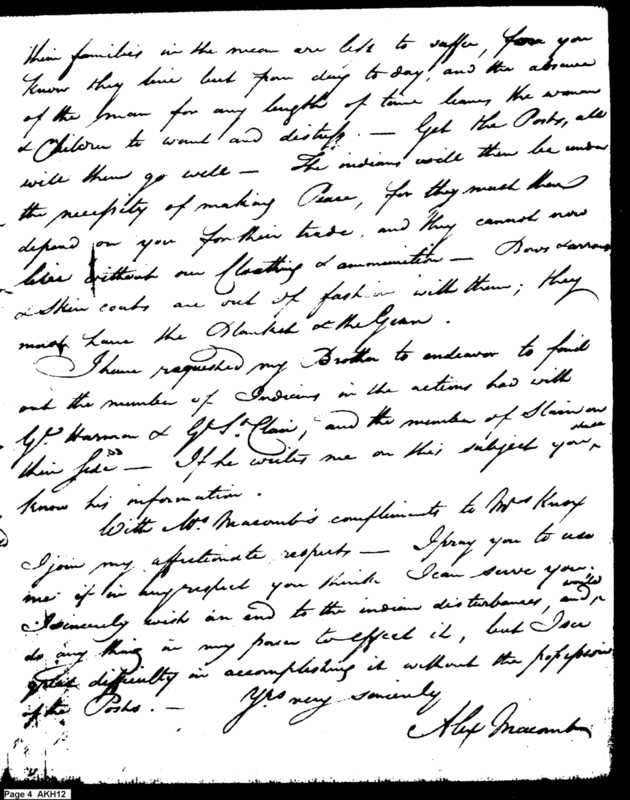 their families in the mean are left to suffer, for you
know they live but from day to day, and the absence
of the man for any length of time leaves the woman
& Children to want and distress. — Get the Posts, all
will then go well — The indians will then be under
the necessity of making Peace, for they must then
depend on you for their trade, and they cannot now
live without our Cloathing & amonunition — Bows & arrows
& Skin coats are out of fashion with them; they
must have the Blanket & the Gun.
I have requested my Brother to endeavor to find
out the number of Indians in the actions had with
Gl. Harmon & Gl. St. Clair, and the number of Slain on
their side — If he writes me on this subject you shall
know his information.
With Mrs. Macomb's compliments to Mrs Knox
I join my affectionate respects — I pray you to use
me if in any respect you think I can serve you.
I sincerely wish an end to the indian disturbances, and would
do any thing in my power to effect it, but I see
great difficulty in accomplishing it without the possession
of the Posts. — Yrs very sincerely
Alex Macomb
Page 4 AKH12